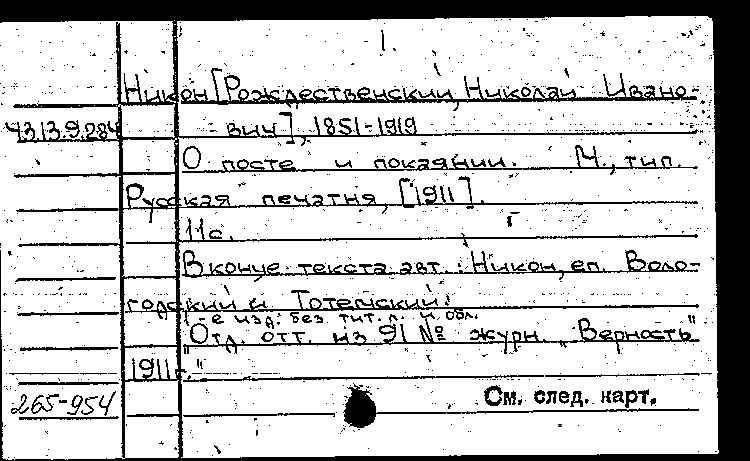 1.
Никон [Рождественский, Николай Ивано-
Ч313.9.284
вич], 1851-1919
О посте и покаянии. М., тип.
Русская печатня, [1911].
11с.
В конце текста авт.: Никон, еп. Воло-
годский и Тотемский.
1-е изд. без тит. л. и обл.
"Отд. отт. из 91 № журн. "Верность"
1911г."
265-954
См. след. карт.